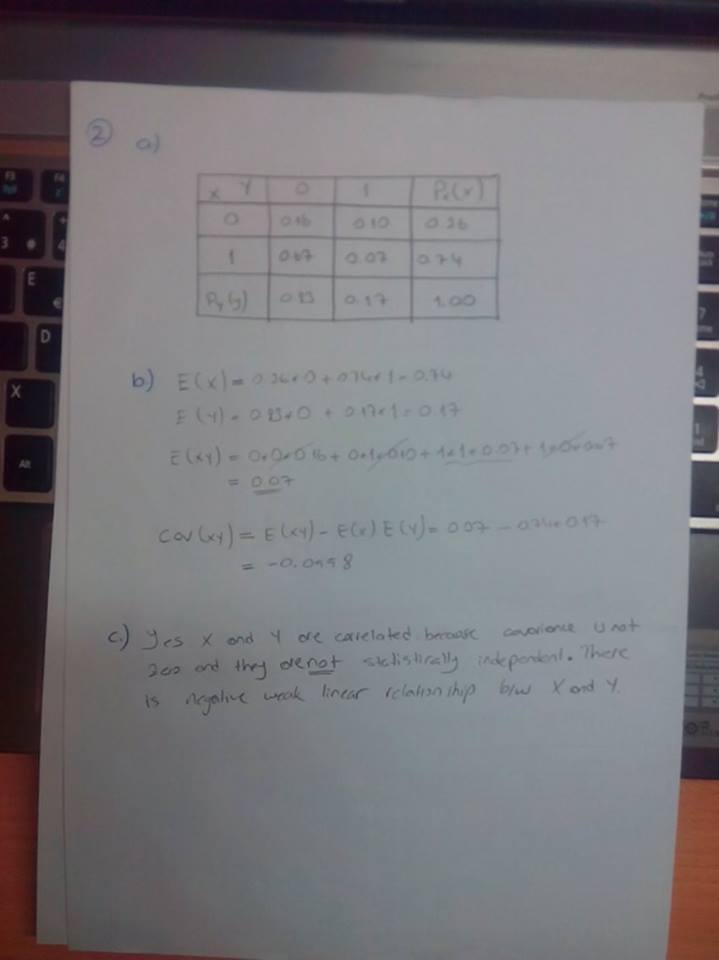 2 a)
X Y 0 1 Px(x)
0 0.16 0.10 0.26
1 0.67 0.07 0.74
Py(y) 0.83 0.17 1.00
b) E(X) = 0.26×0 + 0.74×1 = 0.74
E(Y) = 0.83×0 + 0.17×1 = 0.17
E(XY) = 0×0×0.16 + 0×1×0.10 + 1×1×0.07 + 1×0×0.07
= 0.07
Cov(xy) = E(XY) - E(x) E(Y) = 0.07 - 0.74×0.17
= -0.0558
c.) Yes X and Y are correlated because covariance is not
zero and they are not statistically independent. There
is negative weak linear relationship b/w X and Y.
F3
F4
3
#
4
E
€
D
X
Alt
7